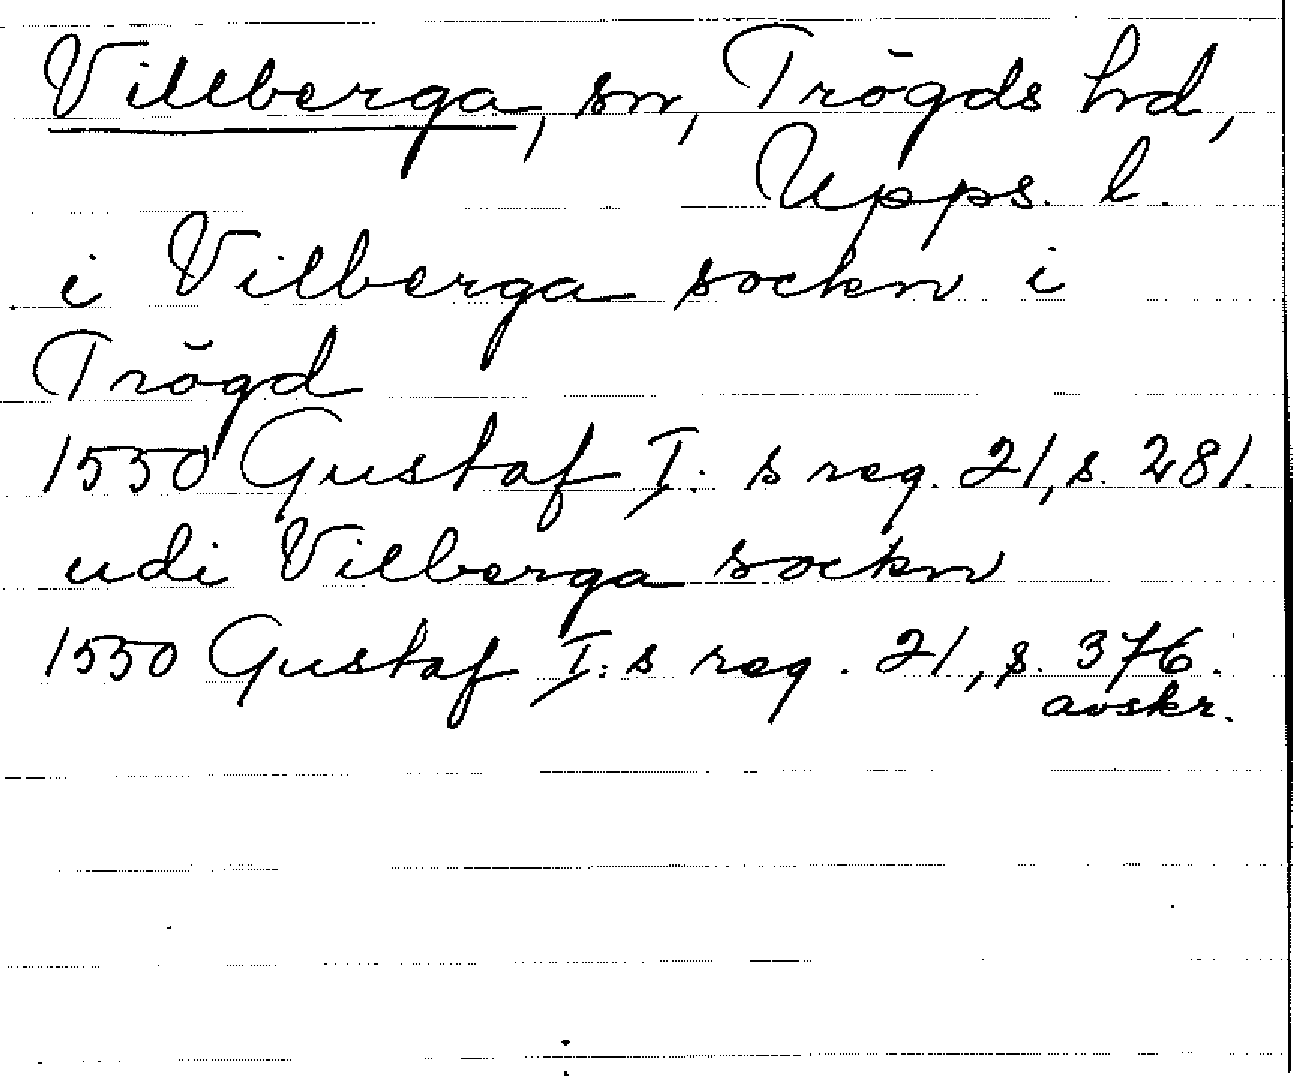 Villberga, sn, Trögds hd,
Upps. l.
i Vilberga sockn i
Trögd
1550 Gustaf I:s reg. 21, s. 281.
udi Vilberga sockn
1550 Gustaf I:s reg. 21, s. 376.
avskr.